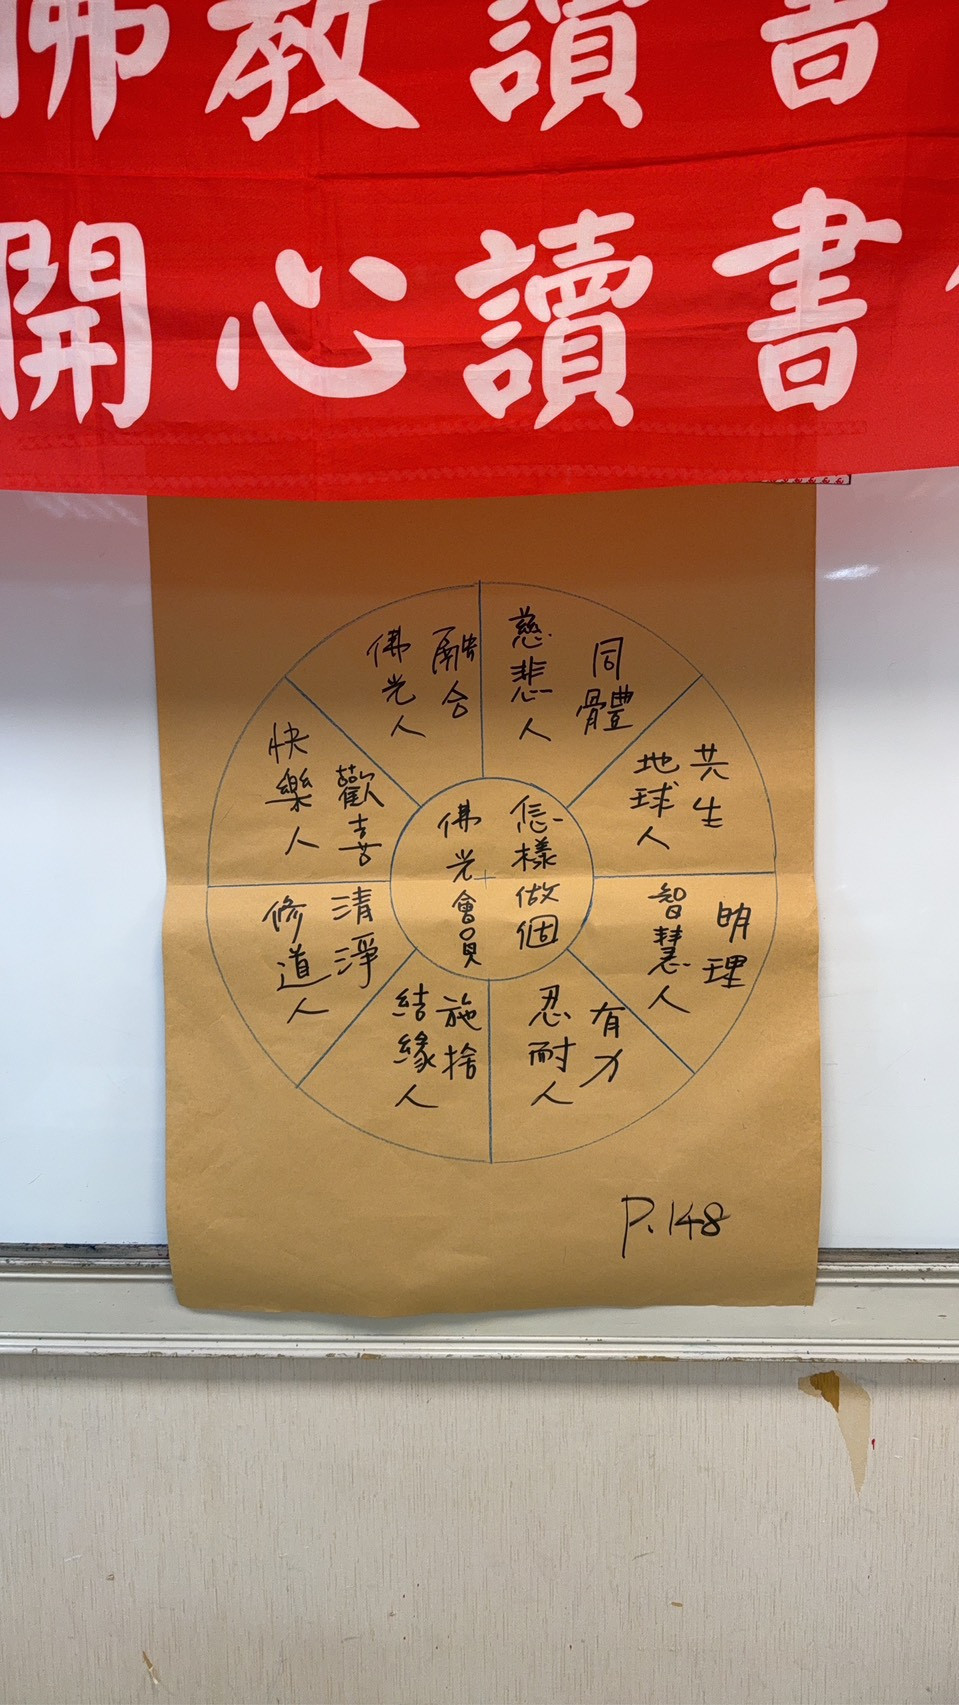 佛教讀書
開心讀書
怎樣做個
佛光會員
同體
慈悲人
共生
地球人
明理
智慧人
有力
忍耐人
施捨
結緣人
清淨
修道人
歡喜
快樂人
融合
佛光人
P.148